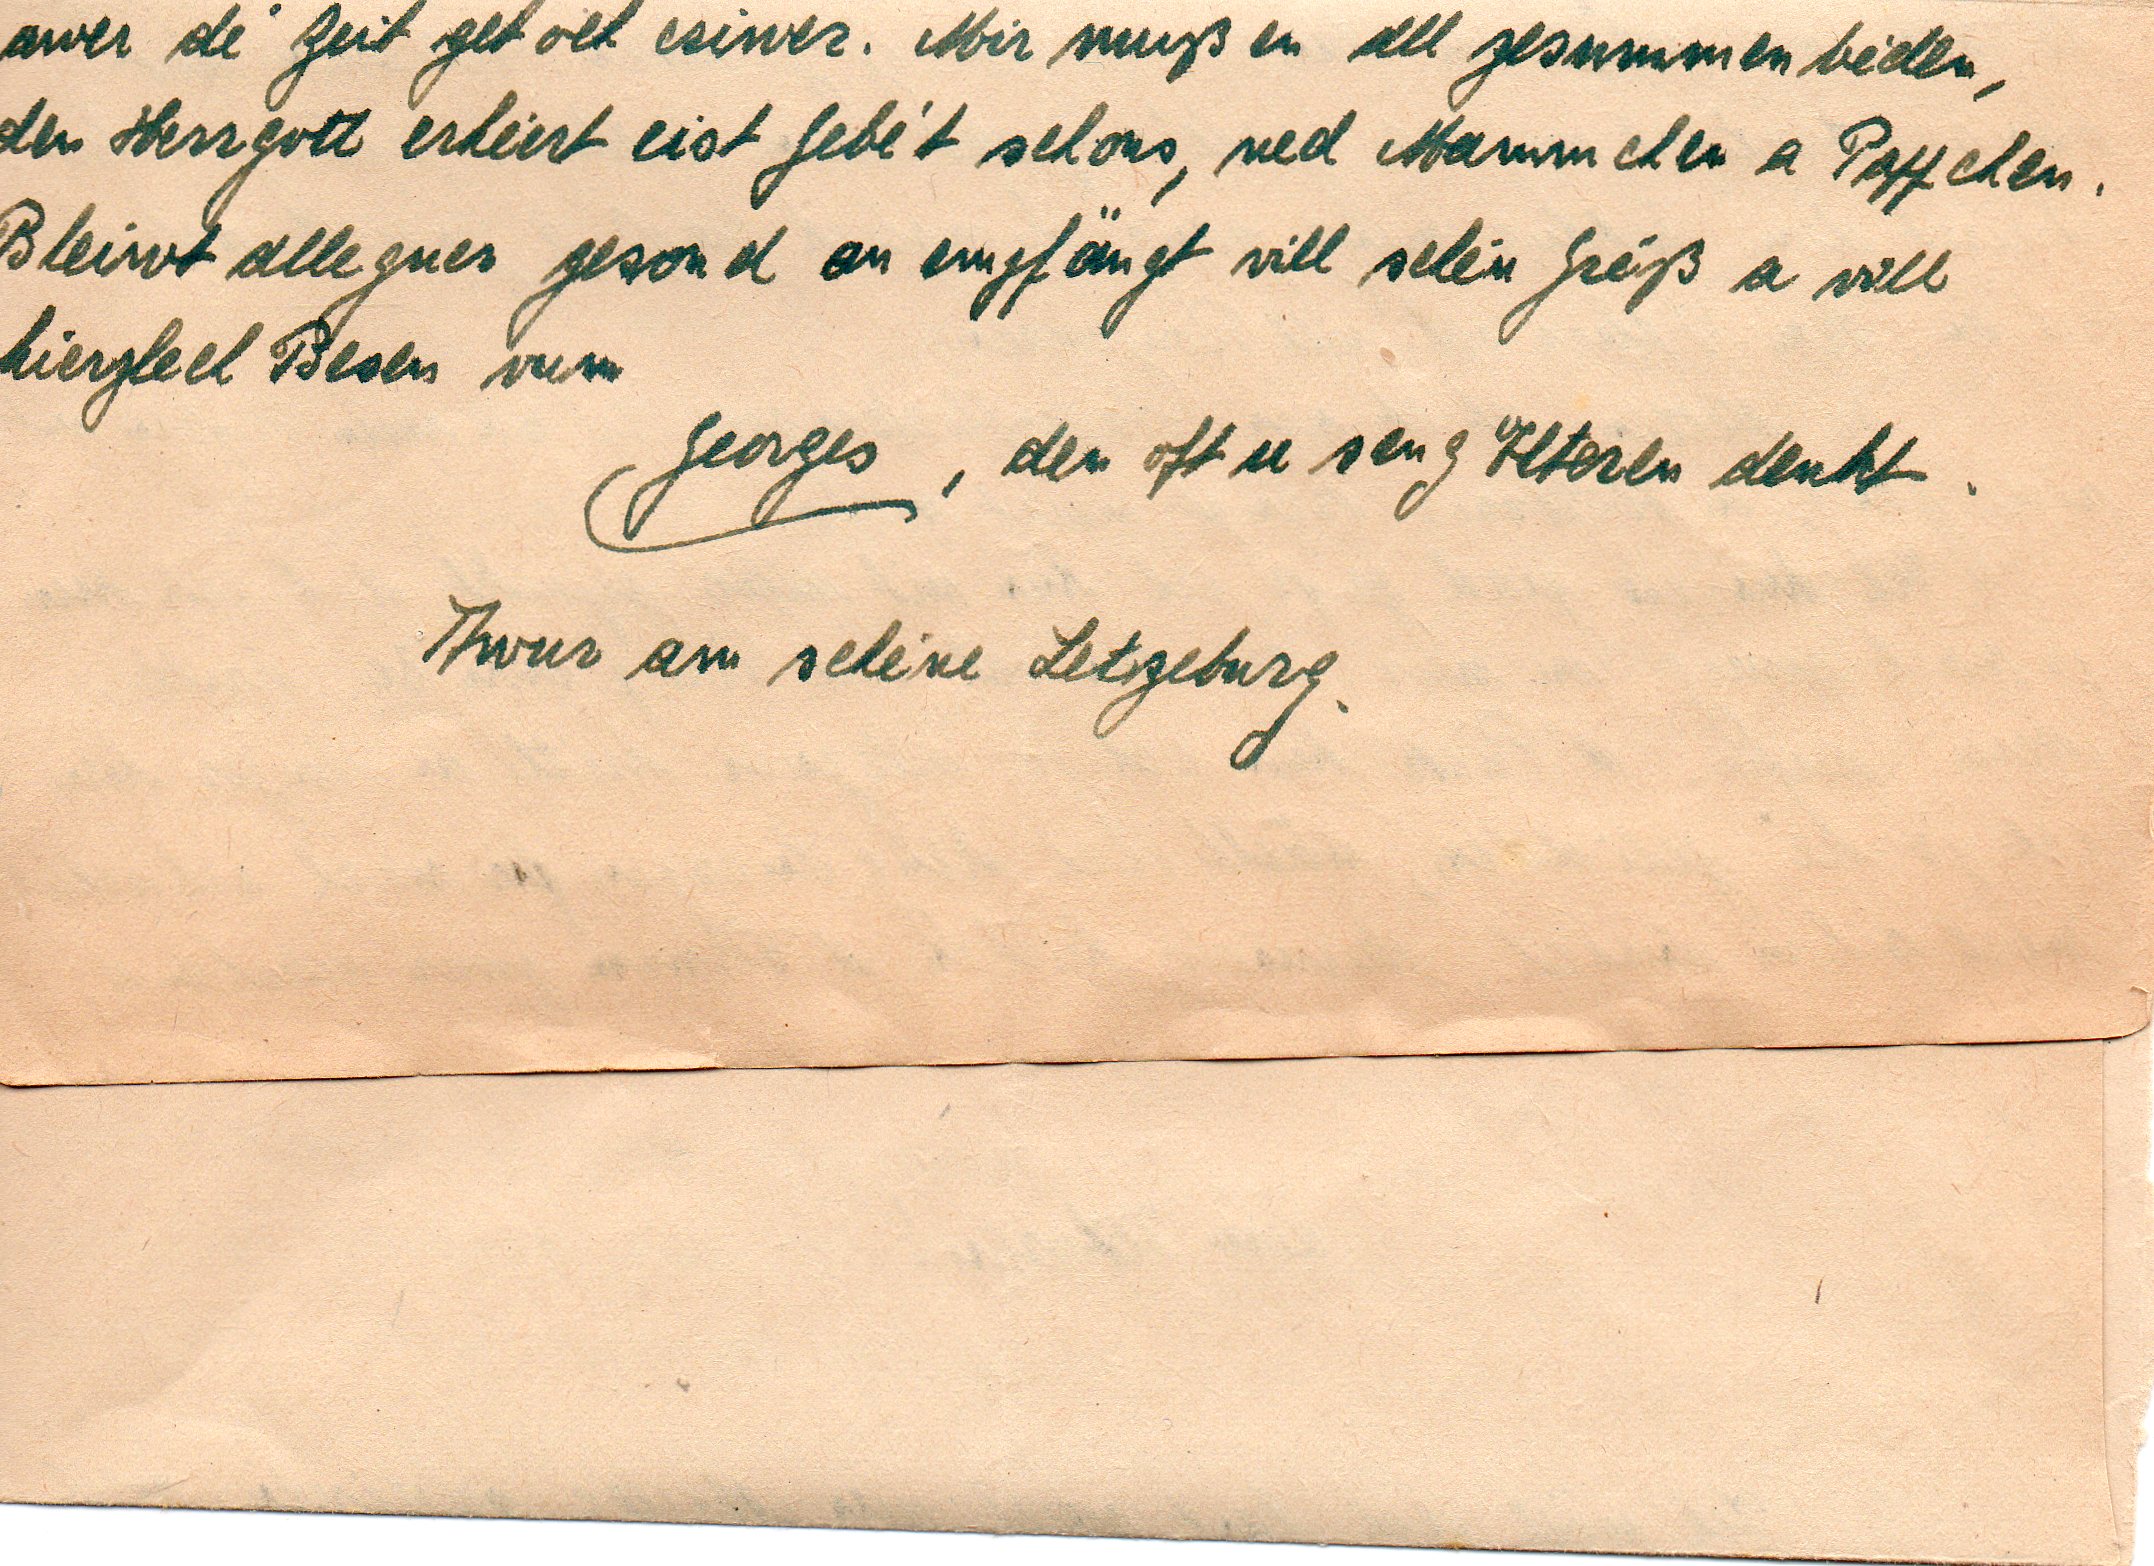 awer dé Zeit get och eriwer. Mir mußen all zesummen bieden,
den Herrgott erhéert eist Gebé't schons, ned Mammchen a Pappchen.
Bleiwt alleguer gesond an empfängt vill schéin Gréiß a vill
hierzlech Besen vum
Georges, den oft u seng Elteren denkt.
Awur am schéine Letzeburg.